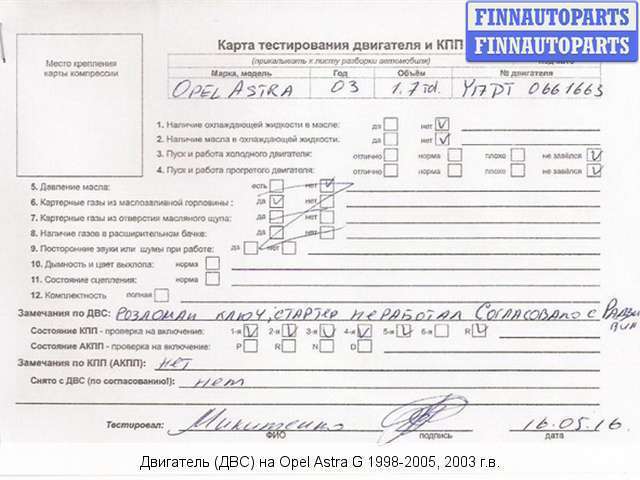 FINNAUTOPARTS
FINNAUTOPARTS
Карта тестирования двигателя и КПП
(прикалывать к листу разборки автомобиля)
Место крепления
карты компрессии
Марка, модель Год Объём № двигателя
OPEL ASTRA 03 1.7 td. Y17DT 0661663
1. Наличие охлаждающей жидкости в масле: да нет
2. Наличие масла в охлаждающей жидкости. да нет
3. Пуск и работа холодного двигателя: отлично норма плохо не завёлся
4. Пуск и работа прогретого двигателя: отлично норма плохо не завёлся
5. Давление масла: есть нет
6. Картерные газы из маслозаливной горловины: да нет
7. Картерные газы из отверстия масляного щупа: да нет
8. Наличие газов в расширительном бачке: да нет
9. Посторонние звуки или шумы при работе: да нет
10. Дымность и цвет выхлопа: норма
11. Состояние сцепления: норма
12. Комплектность полная
Замечания по ДВС: Розломан ключ, стартер не работал Согласовано с
Состояние КПП - проверка на включение: 1-я 2-я 3-я 4-я 5-я 6-я R
Состояние АКПП - проверка на включение: P R N D
Замечания по КПП (АКПП): нет
Снято с ДВС (по согласованию!): нет
Тестировал: Микитенко 16.05.16
ФИО подпись дата
Двигатель (ДВС) на Opel Astra G 1998-2005, 2003 г.в.